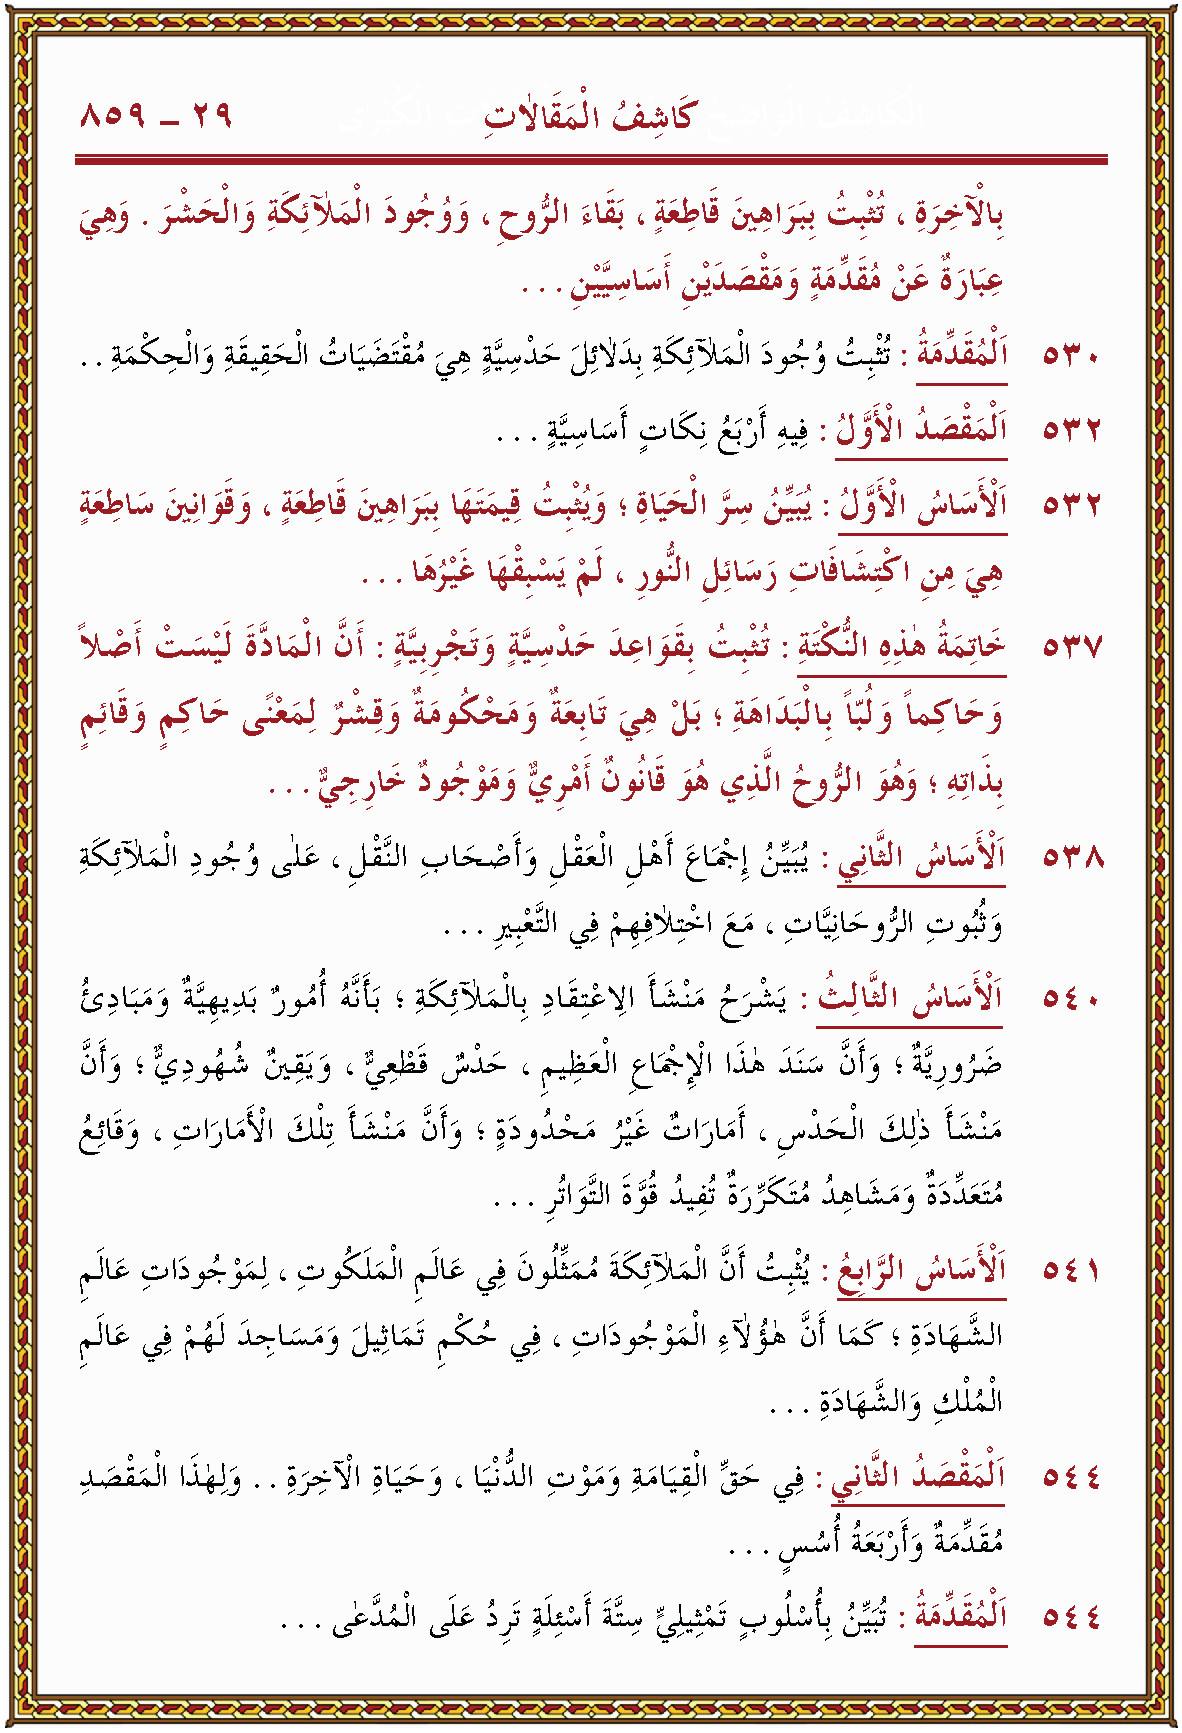 كَاشِفُ الْمَقَالَاتِ ٢٩ – ٨٥٩
بِالْآخِرَةِ ، تُثْبِتُ بِبَرَاهِينَ قَاطِعَةٍ ، بَقَاءَ الرُّوحِ ، وَوُجُودَ الْمَلَآئِكَةِ وَالْحَشْرَ . وَهِيَ
عِبَارَةٌ عَنْ مُقَدِّمَةٍ وَمَقْصَدَيْنِ أَسَاسِيَّيْنِ . . .
٥٣٠ اَلْمُقَدِّمَةُ : تُثْبِتُ وُجُودَ الْمَلَآئِكَةِ بِدَلَائِلَ حَدْسِيَّةٍ هِيَ مُقْتَضَيَاتُ الْحَقِيقَةِ وَالْحِكْمَةِ . .
٥٣٢ اَلْمَقْصَدُ الْأَوَّلُ : فِيهِ أَرْبَعُ نِكَاتٍ أَسَاسِيَّةٍ . . .
٥٣٢ اَلْأَسَاسُ الْأَوَّلُ : يُبَيِّنُ سِرَّ الْحَيَاةِ ؛ وَيُثْبِتُ قِيمَتَهَا بِبَرَاهِينَ قَاطِعَةٍ ، وَقَوَانِينَ سَاطِعَةٍ
هِيَ مِنِ اكْتِشَافَاتِ رَسَائِلِ النُّورِ ، لَمْ يَسْبِقْهَا غَيْرُهَا . . .
٥٣٧ خَاتِمَةُ هٰذِهِ النُّكْتَةِ : تُثْبِتُ بِقَوَاعِدَ حَدْسِيَّةٍ وَتَجْرِبِيَّةٍ : أَنَّ الْمَادَّةَ لَيْسَتْ أَصْلاً
وَحَاكِماً وَلُبّاً بِالْبَدَاهَةِ ؛ بَلْ هِيَ تَابِعَةٌ وَمَحْكُومَةٌ وَقِشْرٌ لِمَعْنًى حَاكِمٍ وَقَائِمٍ
بِذَاتِهِ ؛ وَهُوَ الرُّوحُ الَّذِي هُوَ قَانُونٌ أَمْرِيٌّ وَمَوْجُودٌ خَارِجِيٌّ . . .
٥٣٨ اَلْأَسَاسُ الثَّانِي : يُبَيِّنُ إِجْمَاعَ أَهْلِ الْعَقْلِ وَأَصْحَابِ النَّقْلِ ، عَلٰى وُجُودِ الْمَلَآئِكَةِ
وَثُبُوتِ الرُّوحَانِيَّاتِ ، مَعَ اخْتِلَافِهِمْ فِي التَّعْبِيرِ . . .
٥٤٠ اَلْأَسَاسُ الثَّالِثُ : يَشْرَحُ مَنْشَأَ الِاعْتِقَادِ بِالْمَلَآئِكَةِ ؛ بَأَنَّهُ أُمُورٌ بَدِيهِيَّةٌ وَمَبَادِئُ
ضَرُورِيَّةٌ ؛ وَأَنَّ سَنَدَ هٰذَا الْإِجْمَاعِ الْعَظِيمِ ، حَدْسٌ قَطْعِيٌّ ، وَيَقِينٌ شُهُودِيٌّ ؛ وَأَنَّ
مَنْشَأَ ذٰلِكَ الْحَدْسِ ، أَمَارَاتٌ غَيْرُ مَحْدُودَةٍ ؛ وَأَنَّ مَنْشَأَ تِلْكَ الْأَمَارَاتِ ، وَقَائِعُ
مُتَعَدِّدَةٌ وَمَشَاهِدُ مُتَكَرِّرَةٌ تُفِيدُ قُوَّةَ التَّوَاتُرِ . . .
٥٤١ اَلْأَسَاسُ الرَّابِعُ : يُثْبِتُ أَنَّ الْمَلَآئِكَةَ مُمَثِّلُونَ فِي عَالَمِ الْمَلَكُوتِ ، لِمَوْجُودَاتِ عَالَمِ
الشَّهَادَةِ ؛ كَمَا أَنَّ هٰؤُلَآءِ الْمَوْجُودَاتِ ، فِي حُكْمِ تَمَاثِيلَ وَمَسَاجِدَ لَهُمْ فِي عَالَمِ
الْمُلْكِ وَالشَّهَادَةِ . . .
٥٤٤ اَلْمَقْصَدُ الثَّانِي : فِي حَقِّ الْقِيَامَةِ وَمَوْتِ الدُّنْيَا ، وَحَيَاةِ الْآخِرَةِ . . وَلِهٰذَا الْمَقْصَدِ
مُقَدِّمَةٌ وَأَرْبَعَةُ أُسُسٍ . . .
٥٤٤ اَلْمُقَدِّمَةُ : تُبَيِّنُ بِأُسْلُوبٍ تَمْثِيلِيٍّ سِتَّةَ أَسْئِلَةٍ تَرِدُ عَلَى الْمُدَّعٰى . . .